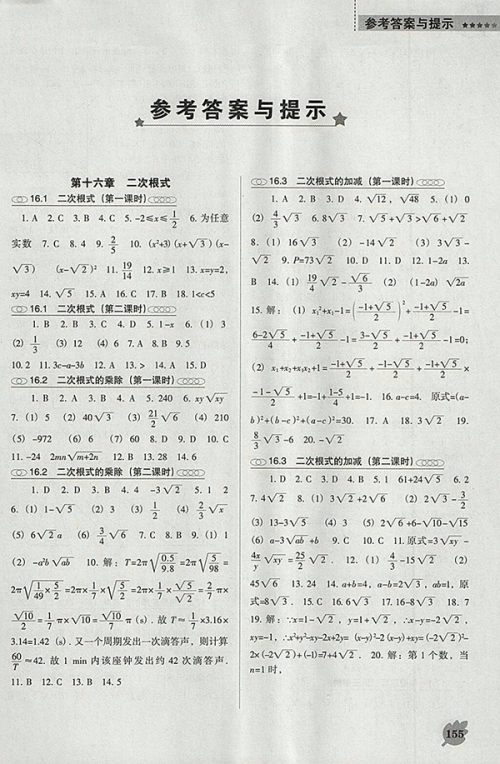 参考答案与提示 ★★★★★
参考答案与提示
第十六章 二次根式
16.1 二次根式（第一课时）
1. A 2. C 3. B 4. C 5. -2≤x≤1/2 6. 为任意
实数 7. C 8. 4 9. 2/5 10. (x²+3)(x+√3)(x-
√3) (x-√2)² 11. 19/14 12. x≥1 13. x=y=2,
xy=4 14. √5 15. A 16. C 17. B 18. 1<c<5
16.1 二次根式（第二课时）
1. B 2. B 3. C 4. D 5. 1-x 6. (1) 3
(2) 1/3 (3) 12 (4) 6 7. A 8. B 9. 5
10. 2 11. 3c-a-3b 12. A 13. > 14. A 15. D
16.2 二次根式的乘除（第一课时）
1. B 2. B 3. A 4. A 5. 240 6. xy√xy
7. (1) 5 (2) 40√3 (3) 21/2√6 (4) 210
(5) -972 (6) 60 8. D 9. B 10. C
11. -24 2mn√m+2n 12. B 13. 28 14. 6
16.2 二次根式的乘除（第二课时）
1. D 2. D 3. A 4. -3√2 5. 1
6. (1) -1/5 (2) 3 (3) 1/2 (4) 2√2
(5) 6√2a (6) 3/4√6 7. C 8. B 9. (1) 1
(2) -a²b√ab 10. 解：T=2π√(0.5/9.8)=2π√(5/98)=
2π√(1/49×5/2)=2π×1/7×√(5/2)=2π×1/7×
√10/2=1/7π×√10=√10/7π. 故 T≈1/7×3.16×
3.14=1.42 (s). 又一个周期发出一次滴答声, 则计算
60/T≈42. 故 1 min 内该座钟发出约 42 次滴答声.
11. B 12. C 13. B 14. 5
16.3 二次根式的加减（第一课时）
1. A 2. C 3. D 4. √12, √48 5. (1) 0
(2) 4/3√3 6. 8√3 7. √5+√3>√6+√2
8. (1) 16√3 (2) -14√2 (3) 3√3-
√2 9. P=73√2 10. D 11. D 12. 1-2a 13.
B 14. (1) 19/4√2-√6/3 (2) (1-2a)√2a
15. 解：(1) x₁²+x₁-1=((-1+√5)/2)²+(-1+√5)/2-1=
(6-2√5)/4+(-1+√5)/2-1=(3-√5)/2+(-1+√5)/2-1=0;
(2) x₁+x₂+x₁x₂+1=(-1+√5)/2+(-1-√5)/2+(-1+√5)/2×
(-1-√5)/2+1=-1+(1-5)/4+1=-1. 16. a-c=4. 原式=(a-
b)²+(b-c)²+(a-c)²=30. 17. A 18. 3√2 19.
8/3√3-6 20. -√2
16.3 二次根式的加减（第二课时）
1. D 2. B 3. A 4. B 5. 61+24√5 6. 2
7. 4√2 8. (1) 3√2+2 (2) 2√3-3/2
(3) 13-3√5 (4) 2√6+6-√10-√15
(6) a-3√ab+b 9. C 10. C 11. 原式=3√xy-
4x/y√xy=25/2√2. 12. (1) 4/3-15√2 (2)
45√6 13. 24 14. a+b=4, a-b=2√3, ab=1, 原
式=8√3. 15. C 16. 6√3 17. 16-8√3 18. 7
19. 解：∵x=1-√2, y=1+√2, ∴x-y=-2√2,
xy=-1, ∴x²+y²-xy-2x+2y= (x-y)²-2(x-y)+xy=(-2√2)²-
2×(-2√2)+(-1)=7+4√2. 20. 解：第 1 个数, 当
n=1 时,
155